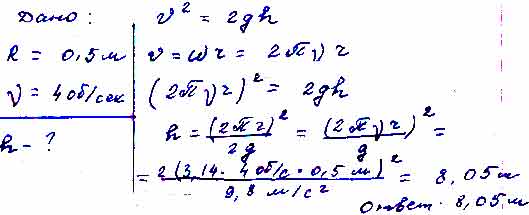 Дано:
R = 0,5 м
ν = 4 об/сек
h - ?
v² = 2gh
v = ωr = 2πνr
(2πνr)² = 2gh
h = (2πr)²/2g = (2πνr)²/g =
= 2(3,14 · 4 об/с · 0,5 м)²/9,8 м/с² = 8,05 м
Ответ: 8,05 м